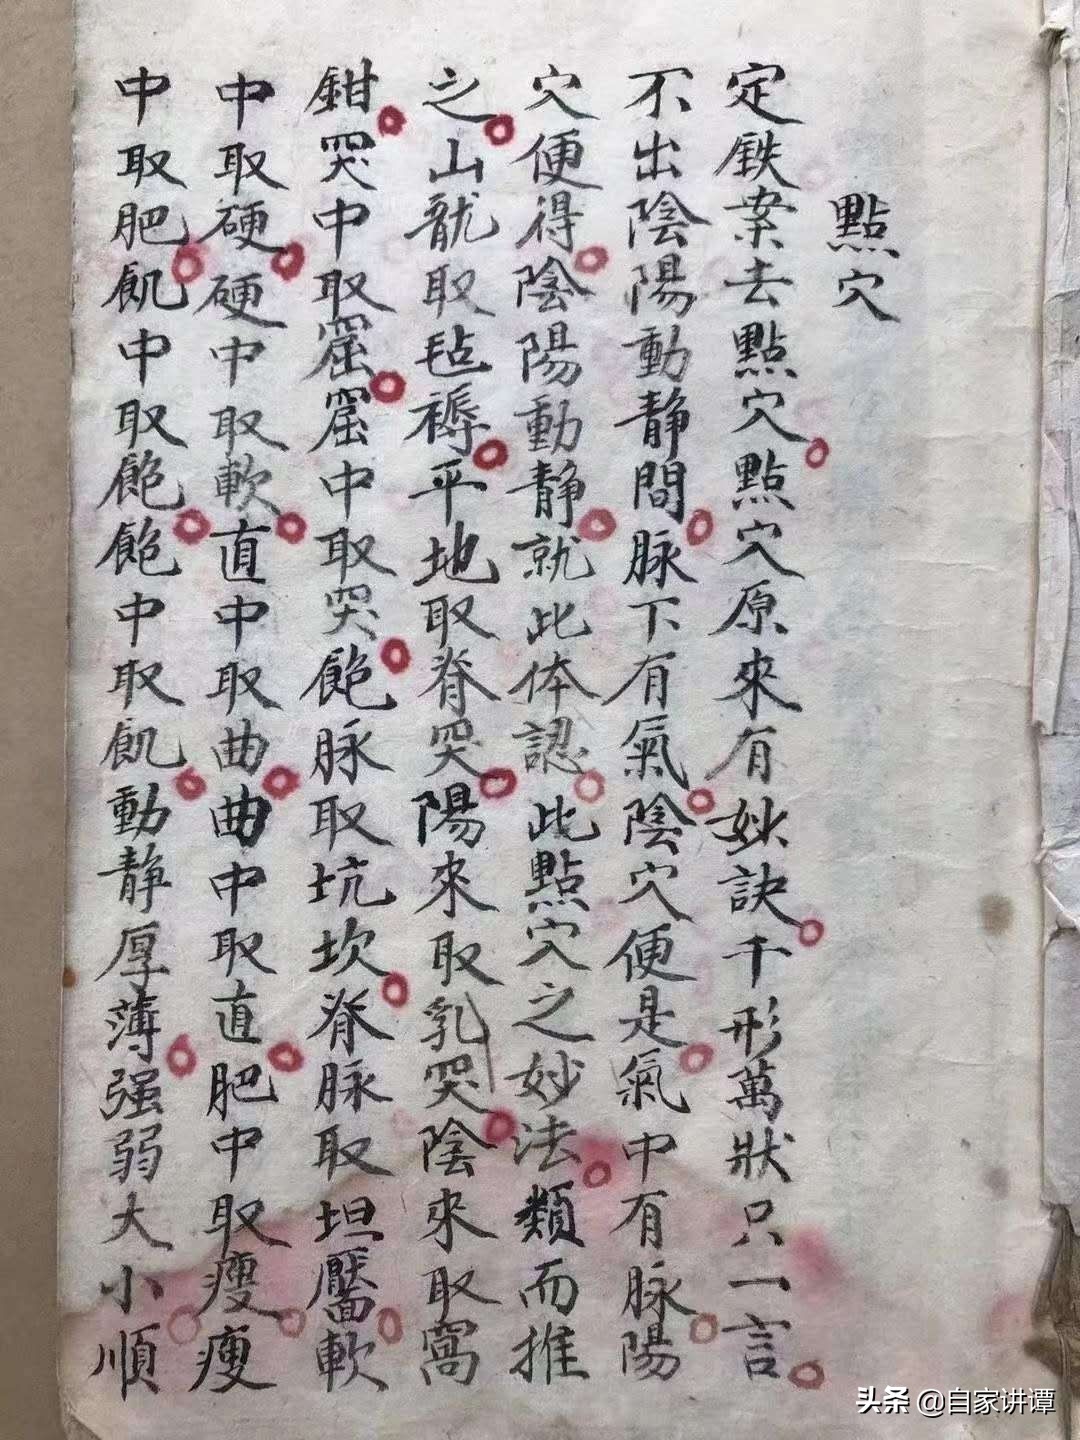 點穴
定鉄案去點穴點穴原來有妙訣千形萬狀只一言
不出陰陽動静間脉下有氣陰穴便是氣中有脉陽
穴便得陰陽動静就此体認此點穴之妙法類而推
之山龍取毡褥平地取脊突陽來取乳突陰來取窩
鉗突中取窟窟中取突飽脉取坑坎脊脉取坦靨軟
中取硬硬中取軟直中取曲曲中取直肥中取瘦瘦
中取肥飢中取飽飽中取飢動静厚薄强弱大小順
头条 @自家讲谭